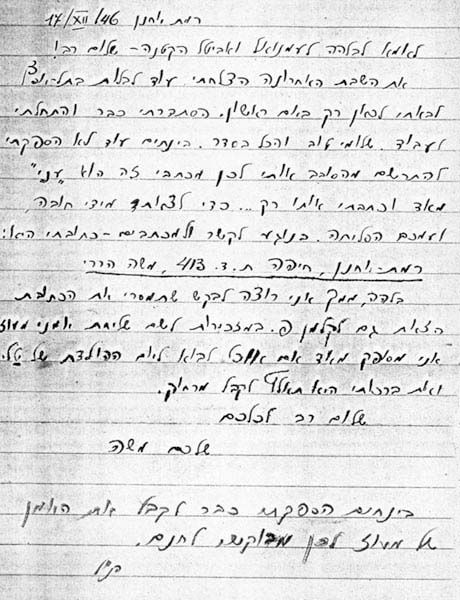 רמת יוחנן 17/XII/46
לאמא לבלהה לעמנואל ואביטל הקטנה - שלום רב!
את השבת האחרונה הצלחתי עוד לבלות בתל-יוסף
ובאתי לכאן רק ביום ראשון. הסתדרתי כבר והתחלתי
לעבוד. שלומי טוב והכל בסדר. בינתים עוד לא הספקתי
להתרשם מהסובב אותי לכן מכתבי זה הוא "עני"
מאד וכתבתי אותו רק... כדי לצאת מידי חובה,
ועמכם הסליחה. בנוגע לקשר ולמכתבים - כתובתי היא:
רמת-יוחנן, חיפה ת.ד. 413, משה הררי
בלהה, ממך אני רוצה לבקש שתמסרי את הכתובת
הזאת גם לקלמן פ. במזכירות לשם שליחת אמני מעוז
אני מסופק מאד אם אוכל לבוא ליום ההולדת של טלי.
ואת ברכותי היא תאלץ לקבל מרחוק.
שלום רב לכולכם
שלכם משה
בינתים הספקתי כבר לקבל את האמן
של מעוז לכן מבוקשי לחנם.
הנ"ל